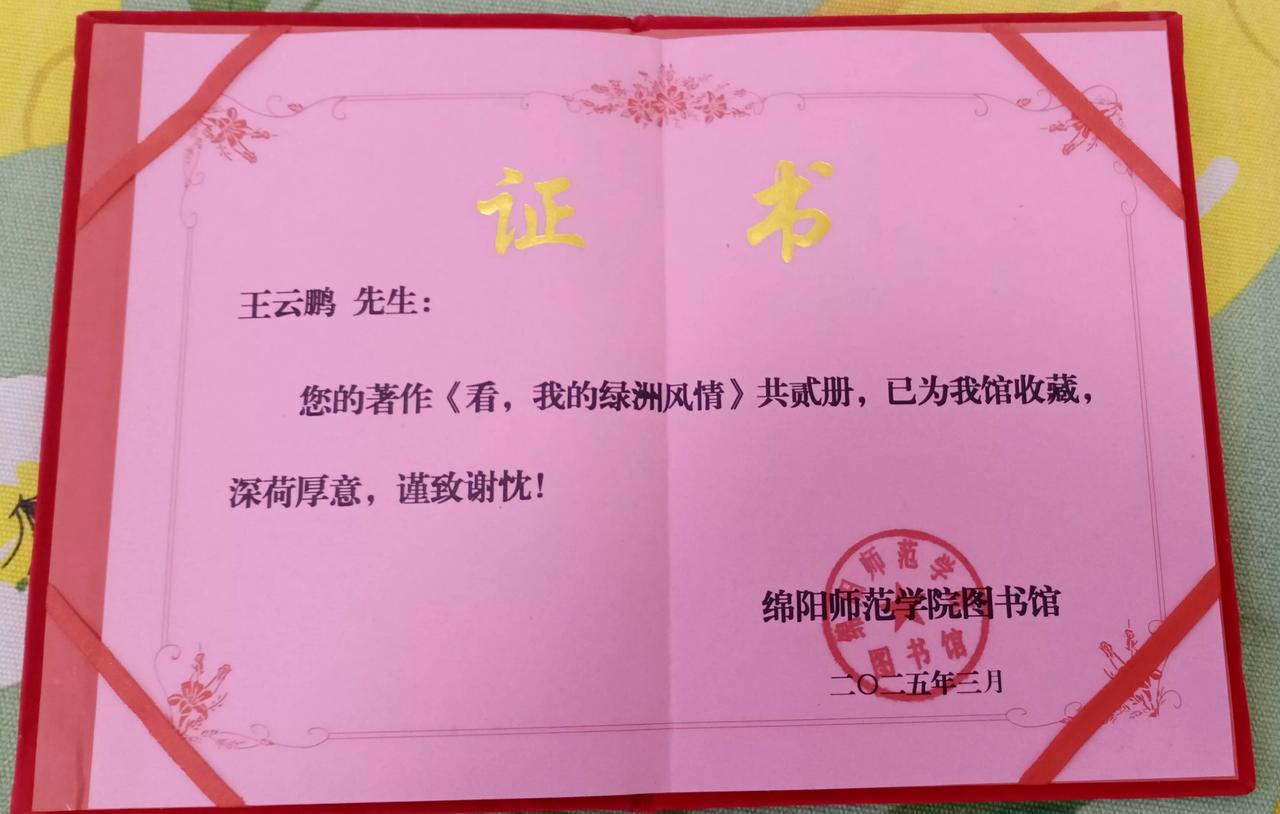 证 书
王云鹏 先生：
您的著作《看，我的绿洲风情》共贰册，已为我馆收藏，
深荷厚意，谨致谢忱！
绵阳师范学院图书馆
二〇二五年三月
绵阳师范学院
图书馆